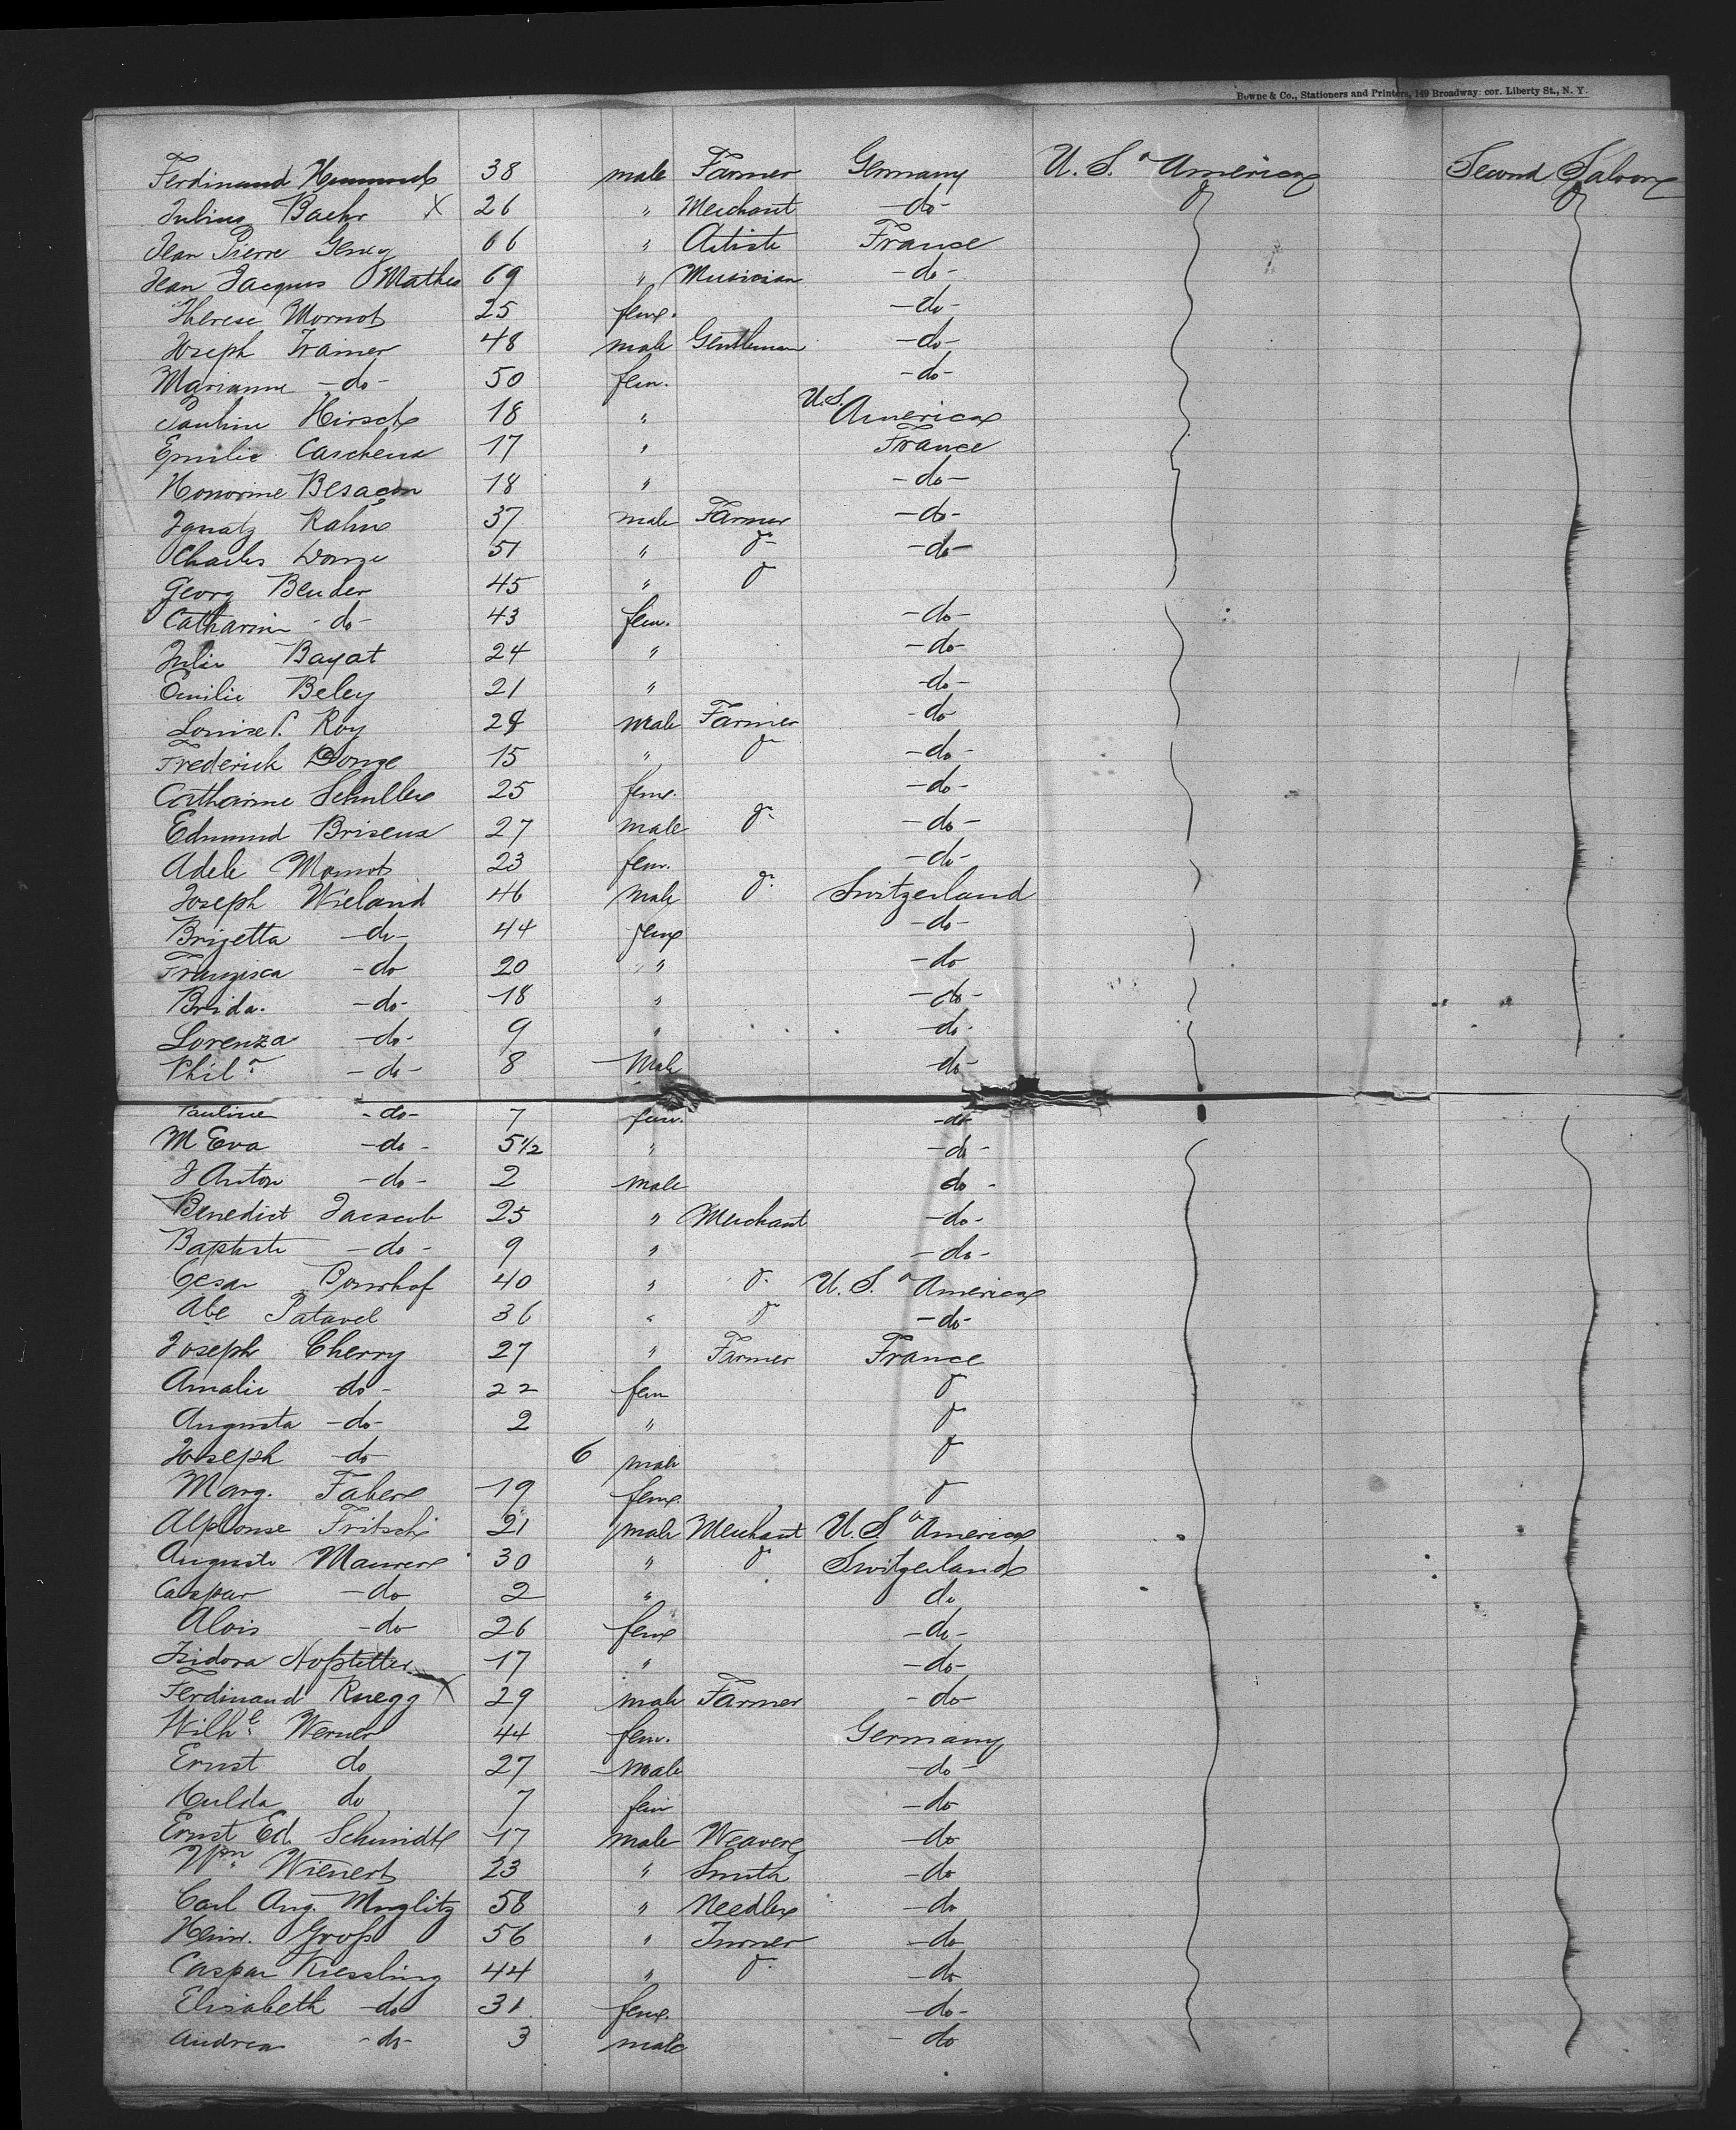 Bowne & Co., Stationers and Printers, 149 Broadway: cor. Liberty St., N. Y.
Ferdinand 38 male Farmer Germany U. S. o America Second Saloon
Julius Baehr X 26 " Merchant -do-
Jean Pierre Geney 66 " Artiste France
Jean Jacques Mathes 69 " Musician -do-
Therese Mornot 25 fem. -do-
Joseph Frainer 48 male Gentleman -do-
Marianne -do- 50 fem. -do-
Pauline Hirsch 18 " U.S. America
Emilie 17 " France
Honorine Besaçon 18 " -do-
Ignatz Rahm 37 male Farmer -do-
Charles Donze 51 " do -do-
Georg Bender 45 " do
Catharin -do- 43 fem. -do-
Julie Bayat 24 " -do-
Emilie Beley 21 " -do-
Louise P. Roy 28 male Farmer -do
Frederick Donze 15 " do -do-
Catharine Schuller 25 fem. -do-
Edmund 27 male do -do-
Adele Mornot 23 fem. -do-
Joseph Wieland 46 male do Switzerland
Brigetta -do- 44 fem -do-
Franzisca -do 20 " -do
Brida. -do- 18 " -do-
Lorenza -do- 9 " -do-
Phil. -do- 8 Male -do-
Pauline -do- 7 fem. -do-
M Eva -do- 5 1/2 " -do-
J Anton -do- 2 male do -
Benedict 25 " Merchant -do-
Baptiste -do- 9 " -do-
Cesar 40 " do U. S. o America
Abe Patavel 36 " do -do-
Joseph Cherry 27 " Farmer France
Amalie do- 22 fem do
Augusta -do- 2 " do
Joseph -do 6 male do
Marg. Faber 19 fem. do
Alphonse Fritschi 21 male Merchant U. S. o America
Auguste Maurer 30 " do Switzerland
Caspar -do 2 " do
Alois -do 26 fem -do-
Isidora Hofstetter 17 " -do-
Ferdinand Ruegg X 29 male Farmer -do-
Wilh.e Werner 44 fem. Germany
Ernst do 27 Male -do-
Hulda do 7 fem -do
Ernst Ed. Schmidt 17 male Weaver -do
Wm. Wienert 23 " Smith -do
Carl Aug. Muglitz 58 " Needler -do
Heinr. Groß 56 " Turner -do
Caspar Kiessling 44 " do -do
Elisabeth -do 31 fem. -do-
Andrea -do- 3 male - do